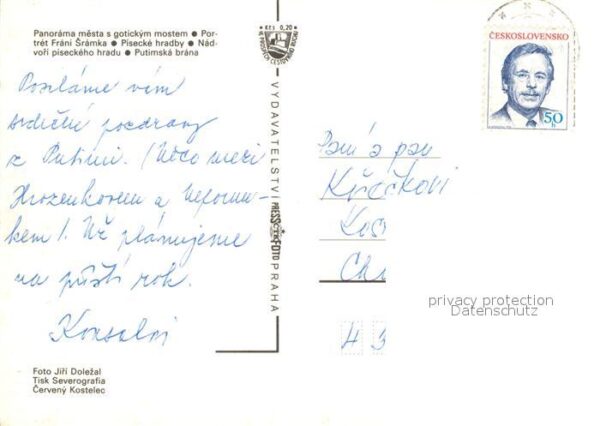 Panoráma města s gotickým mostem ● Por-
trét Fráni Šrámka ● Písecké hradby ● Nád-
voří píseckého hradu ● Putimská brána
Posíláme vám
srdečné pozdravy
z Putimi. (Něco mezi
Hrozenkovem a
plánujeme
na příští rok.
Foto Jiří Doležal
Tisk Severografia
Červený Kostelec
KČS 0,20
VYDAVATELSTVÍ PRESSFOTO PRAHA
ČESKOSLOVENSKO
50 h
Paní a pan
Ch
43
privacy protection
Datenschutz